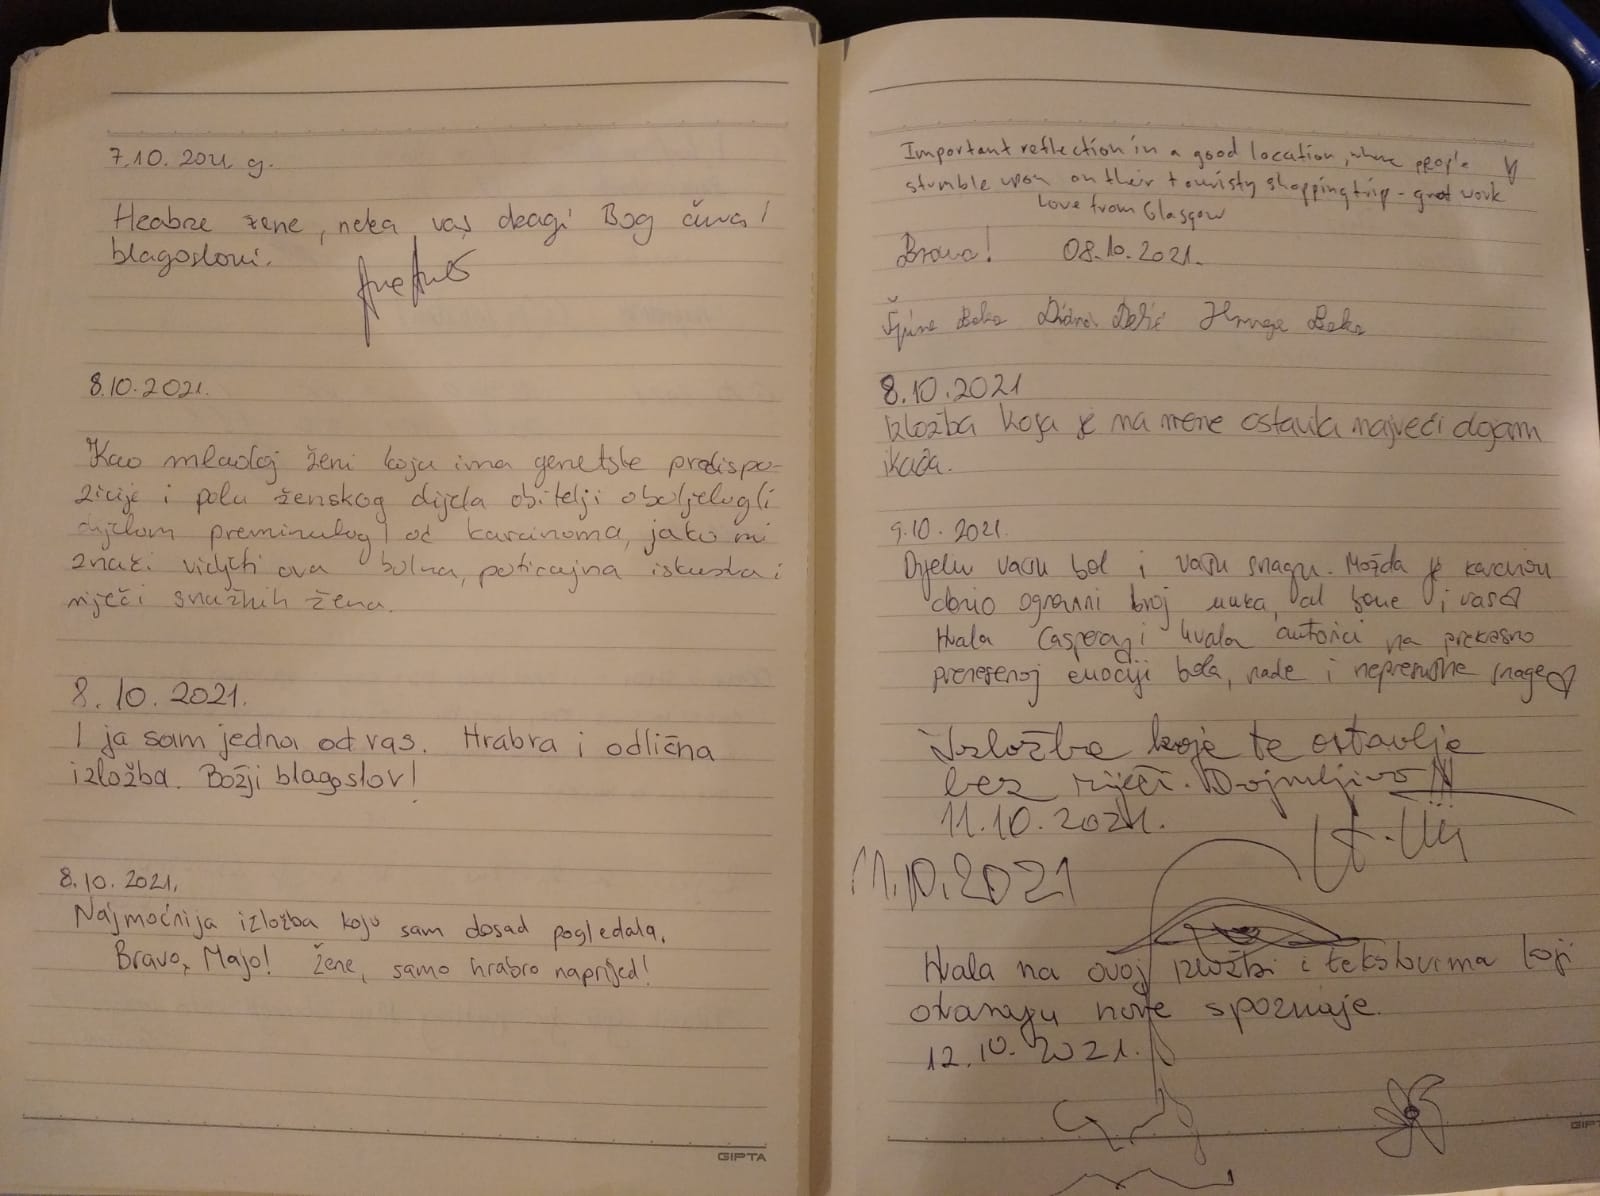 7.10.2021. g.
Hrabre žene, neka vas dragi Bog čuva i
blagoslovi.
8.10.2021.
Kao mladoj ženi koja ima genetske predispo-
zicije i pola ženskog dijela obitelji oboljelog (i
dijelom preminulog) od karcinoma, jako mi
znači vidjeti ova bolna, poticajna iskustva i
riječi snažnih žena.
8.10.2021.
I ja sam jedna od vas. Hrabra i odlična
izložba. Božji blagoslov!
8.10.2021.
Najmoćnija izložba koju sam dosad pogledala.
Bravo, Majo! Žene, samo hrabro naprijed!
GIPTA
Important reflection in a good location, where people
stumble upon on their touristy shopping trip - great work
Love from Glasgow
Bravo! 08.10.2021.
8.10.2021
Izložba koja je na mene ostavila najveći dojam
ikada.
9.10.2021.
Dijelim vašu bol i vašu snagu. Možda je
broj muka, al i vas
Hvala i hvala autorici na prekrasno
prenesenoj emociji bola, nade i nepresušne snage
Izložba koje te ostavlje
bez riječi. Dojmljivo
11.10.2021.
11.10.2021
Hvala na ovoj izložbi i tekstovima koji
otvaraju nove spoznaje.
12.10.2021.